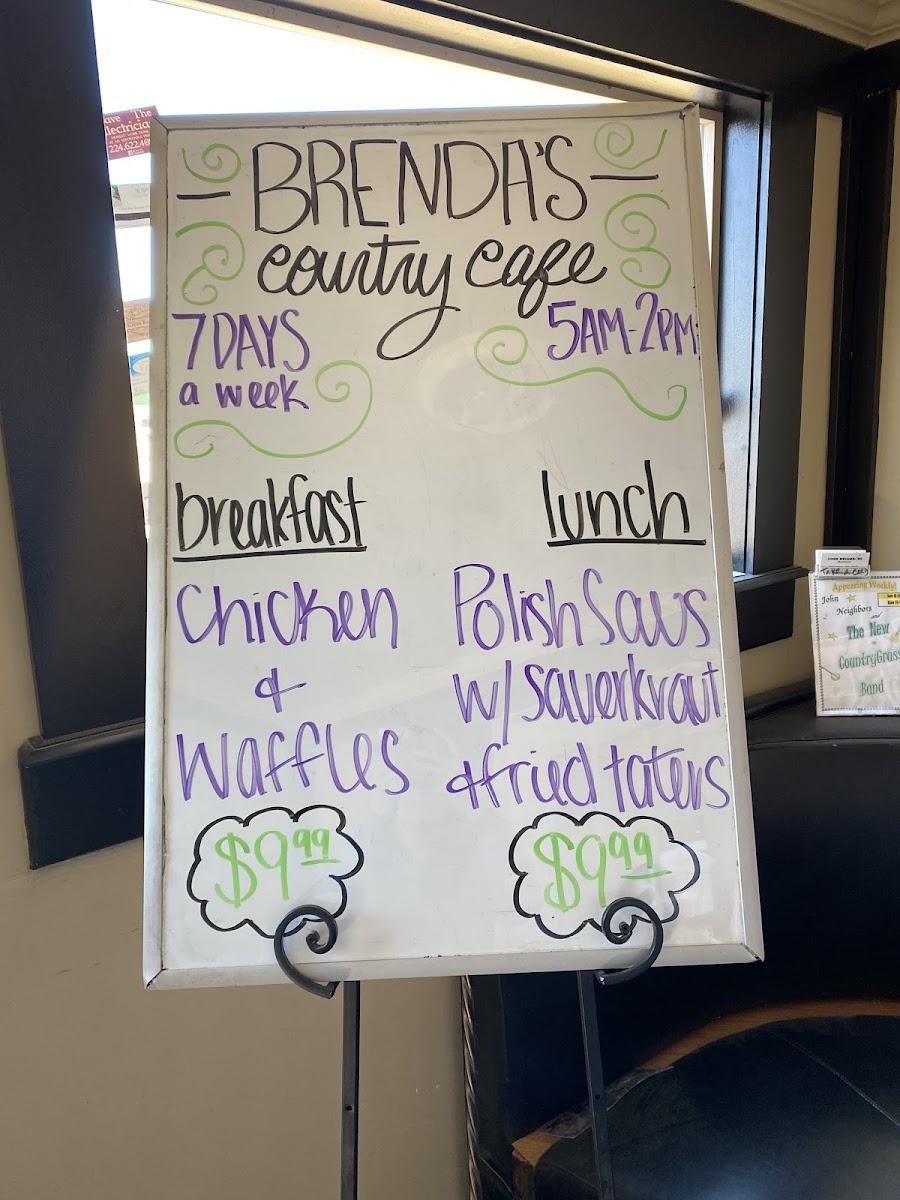 BRENDA'S
country cafe
7 DAYS
a week
5AM-2PM
breakfast
Chicken
&
Waffles
$9.99
lunch
Polish Saus
w/ Sauerkraut
& fried taters
$9.99
ave The
lectricia
224.622.40
Appearing Weekly!
John
Neighbors
and
The New
CountryGrass
Band